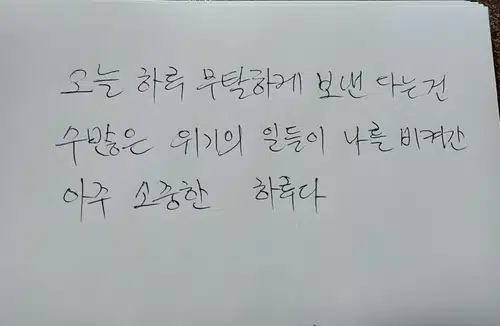 오늘 하루 무탈하게 보낸 다는건
수많은 위기의 일들이 나를 비켜간
아주 소중한 하루다